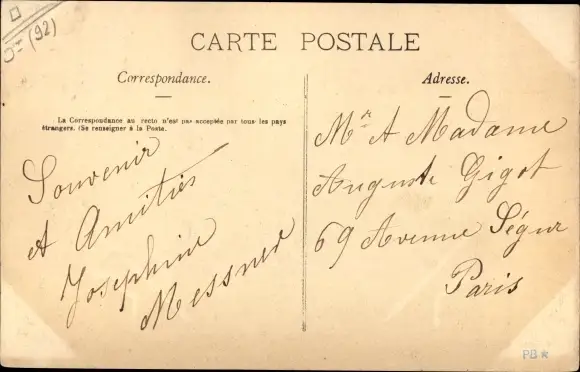 (92)
CARTE POSTALE
Correspondance.
Adresse.
La Correspondance au recto n'est pas acceptée par tous les pays
étrangers. (Se renseigner à la Poste.
Souvenir
et Amitiés
Joséphine
Messner
Mr & Madame
Auguste Gigot
69 Avenue Ségur
Paris
PB